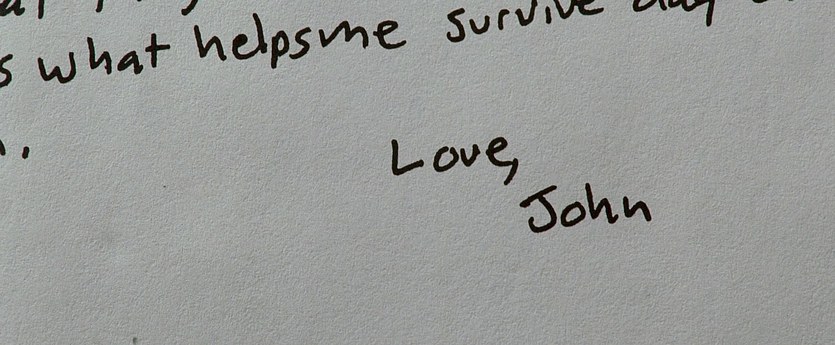 s what helps me survive day
Love,
John